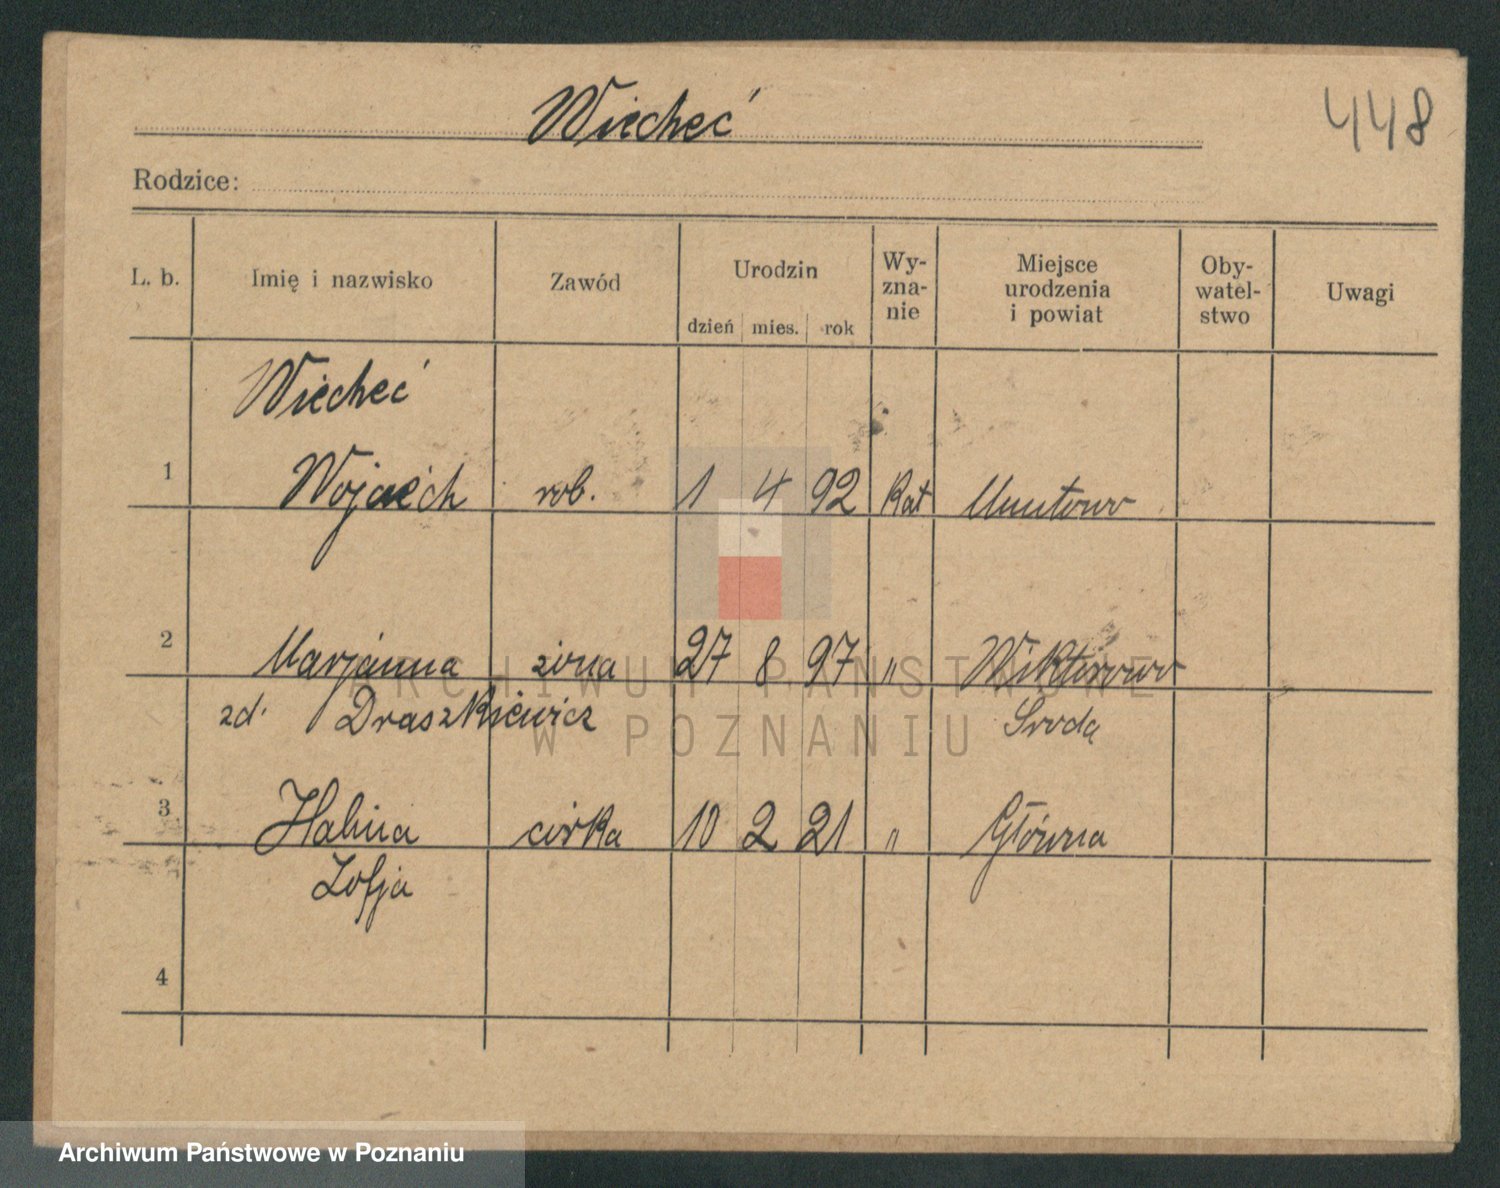 Wiecheć
448
Rodzice:
L. b. Imię i nazwisko Zawód Urodzin Wy- Miejsce Oby- Uwagi
zna- urodzenia watel-
nie i powiat stwo
dzień mies. rok
Wiecheć
1 Wojciech rob. 1 4 92 Kat
2 Marjanna żona 27 8 97 " Wiktorowo
zd. Draszkiewicz Środa
3 Halina córka 10 2 21 " Główna
Zofja
4
ARCHIWUM PAŃSTWOWE
W POZNANIU
Archiwum Państwowe w Poznaniu